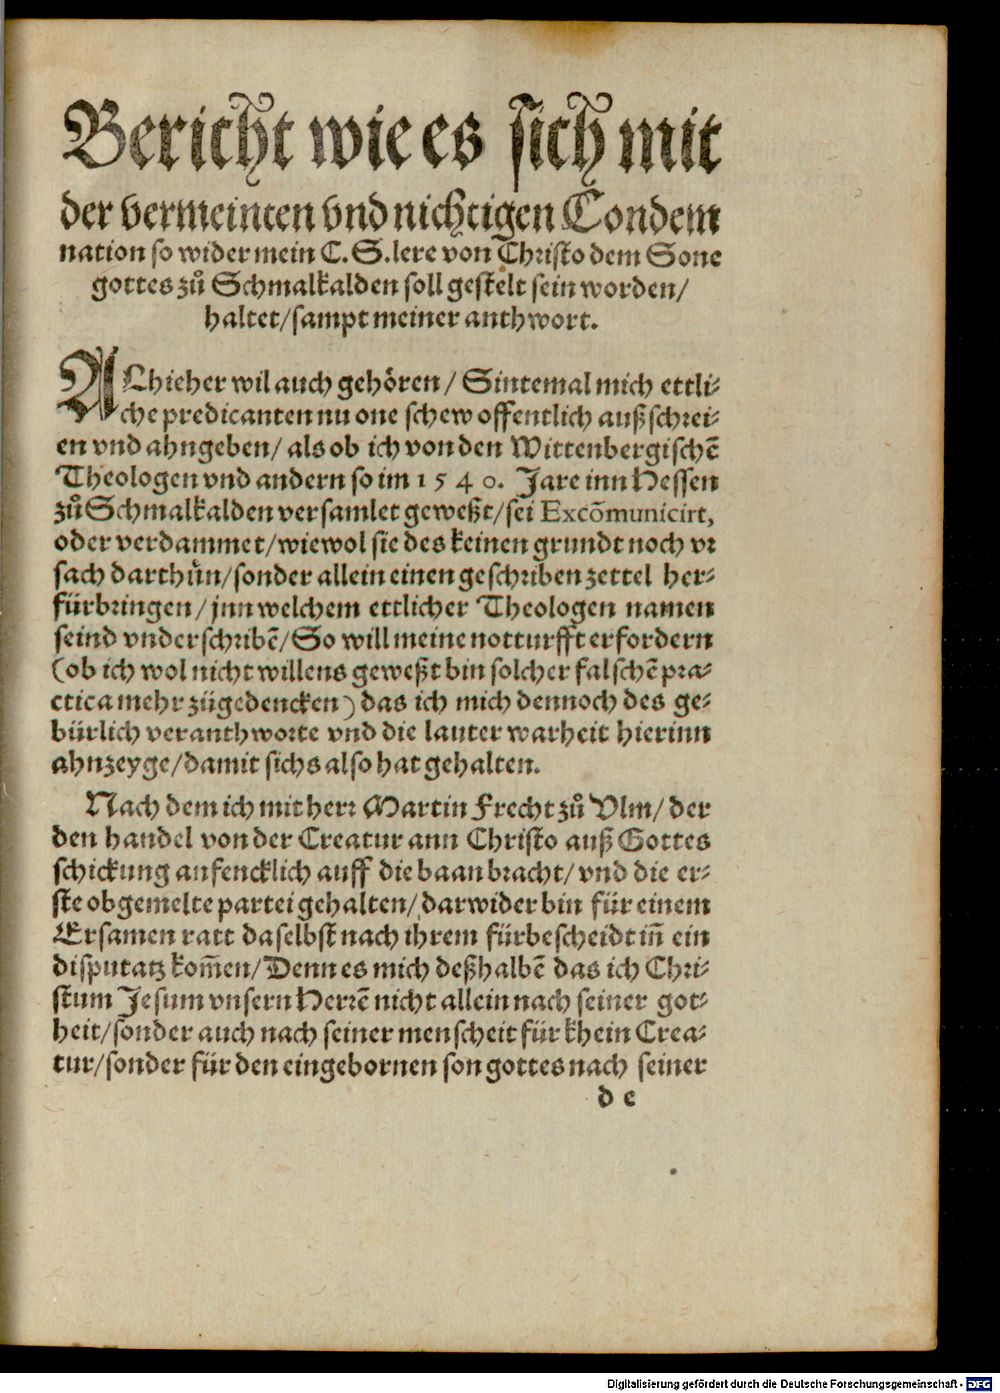 Bericht wie es sich mit
der vermeinten vnd nichtigen Condem
nation so wider mein C. S. lere von Christo dem Sone
gottes zů Schmalkalden soll gestelt sein worden/
haltet/sampt meiner anthwort.
ALhieher wil auch gehören/ Sintemal mich ettli⸗
che predicanten nu one schew offentlich außschrei⸗
en vnd ahngeben/ als ob ich von den Wittenbergischē
Theologen vnd andern so im 1540. Jare inn Hessen
zů Schmalkalden versamlet geweßt/sei Excōmunicirt,
oder verdammet/wiewol sie des keinen grundt noch vr
sach darthůn/sonder allein einen geschriben zettel her⸗
fürbringen/jnn welchem ettlicher Theologen namen
seind vnderschribē/So will meine notturfft erfordern
(ob ich wol nicht willens geweßt bin solcher falschē pra⸗
ctica mehr zůgedencken) das ich mich dennoch des ge⸗
bürlich veranthworte vnd die lauter warheit hierinn
ahnzeyge/damit sichs also hat gehalten.
Nach dem ich mit herr Martin Frecht zů Vlm/ der
den handel von der Creatur ann Christo auß Gottes
schickung anfencklich auff die baan bracht/ vnd die er⸗
ste obgemelte partei gehalten/darwider bin für einem
Ersamen ratt daselbst nach ihrem fürbescheidt iñ ein
disputatz kom̄en/Denn es mich deßhalbē das ich Chri⸗
stum Jesum vnsern Herrē nicht allein nach seiner got⸗
heit/sonder auch nach seiner menscheit für khein Crea⸗
tur/sonder für den eingebornen son gottes nach seiner
d e
Digitalisierung gefördert durch die Deutsche Forschungsgemeinschaft - DFG